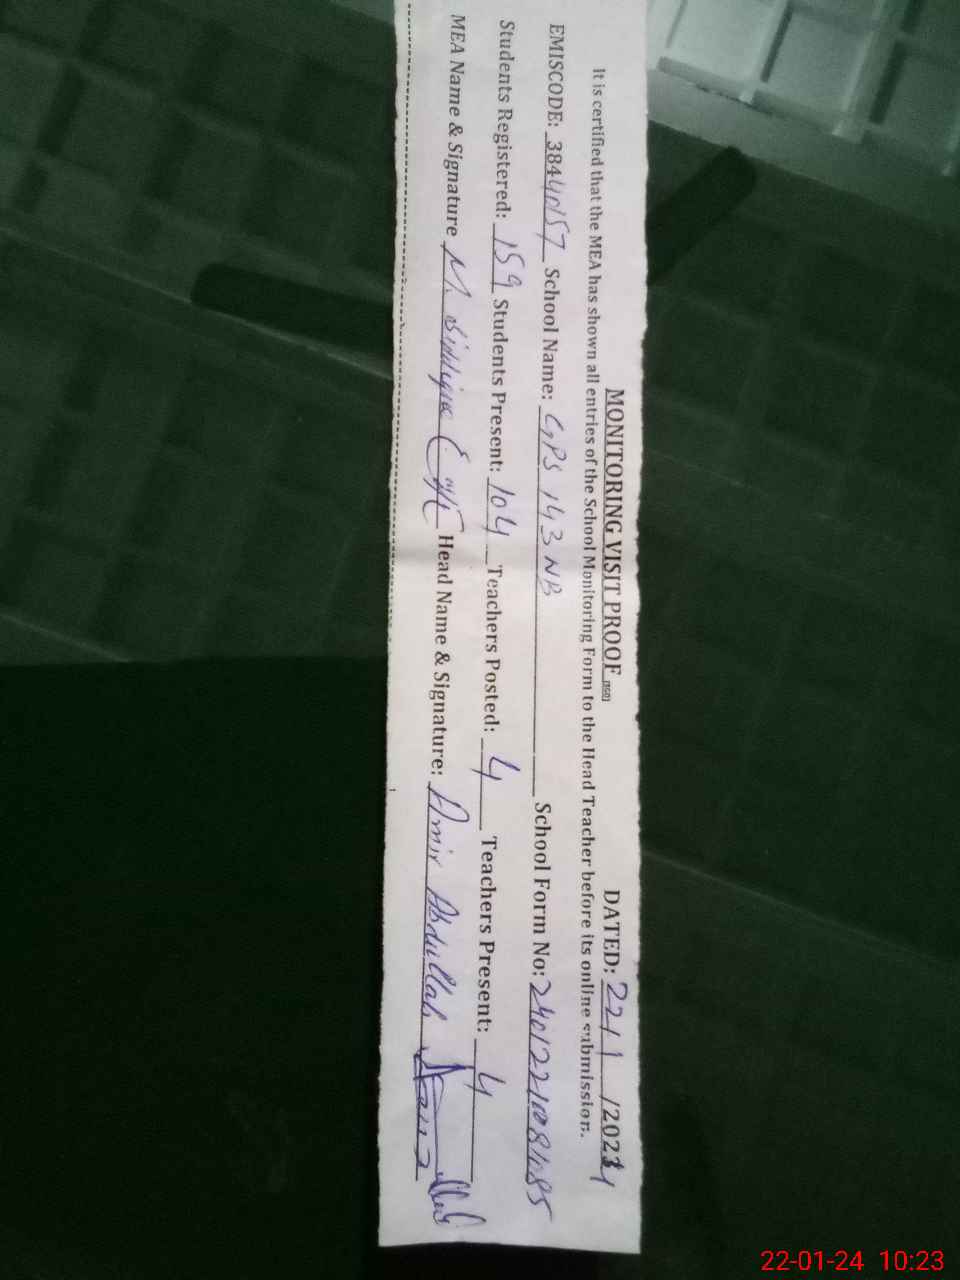 MONITORING VISIT PROOF DATED: 22/1/2024
It is certified that the MEA has shown all entries of the School Monitoring Form to the Head Teacher before its online submission.
EMISCODE: 38440157 School Name: GPS 143 NB School Form No:
Students Registered: 159 Students Present: 104 Teachers Posted: 4 Teachers Present: 4
MEA Name & Signature M. Siddique Head Name & Signature: Amir Abdullah
22-01-24 10:23